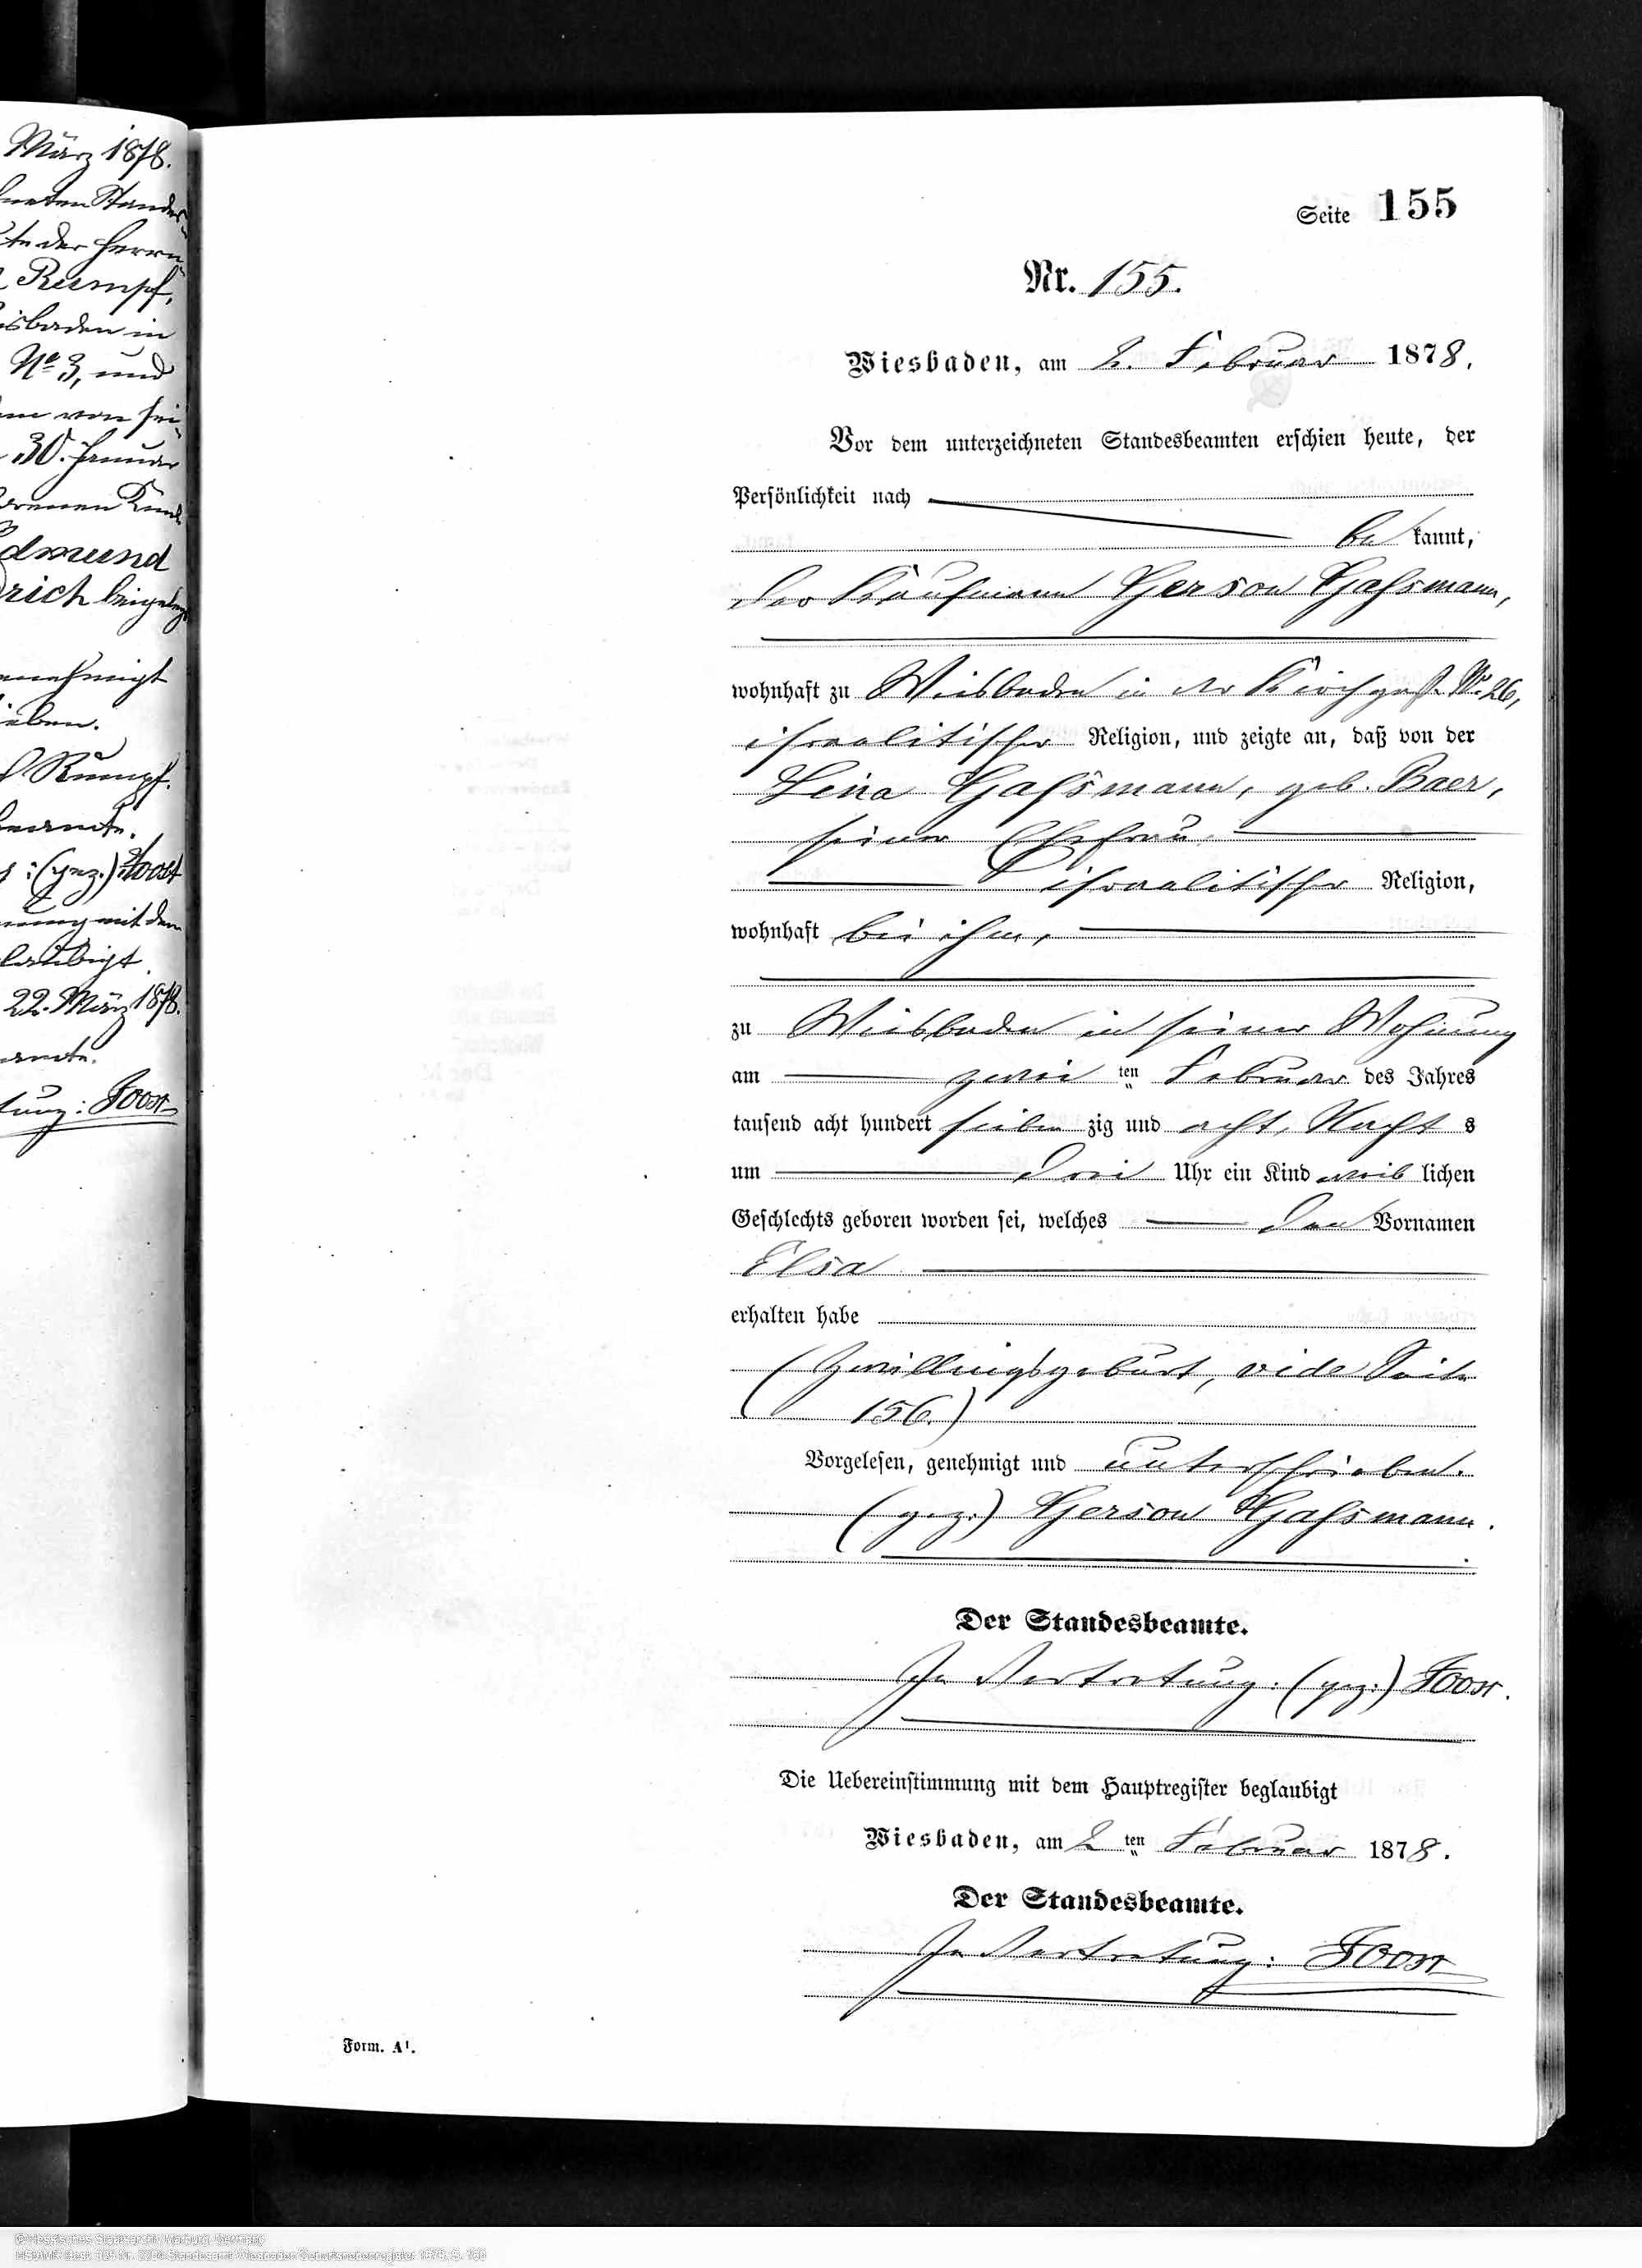 März 1878.
Rumpf,
isbaden in
No 3, und
30. Januar
dmund
rich
Rumpf.
(gez.) Joost
22. März 1878.
Joost
Seite 155
Nr. 155.
Wiesbaden, am 2. Februar 1878.
Vor dem unterzeichneten Standesbeamten erschien heute, der
Persönlichkeit nach
be kannt,
der Kaufmann Gerson Gaßmann,
wohnhaft zu Wiesbaden in der Kirchgasse No. 26,
israelitischer Religion, und zeigte an, daß von der
Lina Gaßmann, geb. Baer,
seiner Ehefrau
israelitischer Religion,
wohnhaft bei ihm,
zu Wiesbaden in seiner Wohnung
am zwei ten Februar des Jahres
tausend acht hundert sieben zig und acht, Nacht s
um drei Uhr ein Kind weib lichen
Geschlechts geboren worden sei, welches den Vornamen
Elsa
erhalten habe
(Zwillingsgeburt, vide Seite
156.)
Vorgelesen, genehmigt und unterschrieben.
(gez.) Gerson Gaßmann.
Der Standesbeamte.
In Vertretung: (gez.) Joost.
Die Uebereinstimmung mit dem Hauptregister beglaubigt
Wiesbaden, am 2 ten Februar 1878.
Der Standesbeamte.
In Vertretung: Joost
Form. A¹.